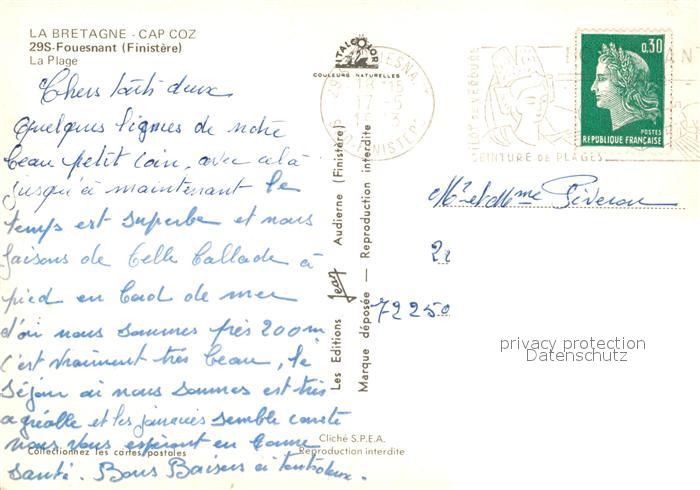 LA BRETAGNE - CAP COZ
29S-Fouesnant (Finistère)
La Plage
Chers touts deux
quelques lignes de notre
beau petit coin, avec cela
jusqu'à maintenant le
temps est superbe et nous
faisons de belle ballade à
pied en bord de mer
d'où nous sommes près 200m
c'est vraiment très beau, le
séjour où nous sommes est très
agréable et les journées semble courte
nous vous espérant en bonne
santé. Bons Baisers à toutdeux.
Collectionnez les cartes postales
ITALCOLOR
COULEURS NATURELLES
Les Editions Jean Audierne (Finistère)
Marque déposée — Reproduction interdite
Cliché S.P.E.A.
Reproduction interdite
18 15
17-5
FINISTERE
CEINTURE DE PLAGES
0,30
POSTES
REPUBLIQUE FRANÇAISE
Mr et Mme Piveron
72250
privacy protection
Datenschutz